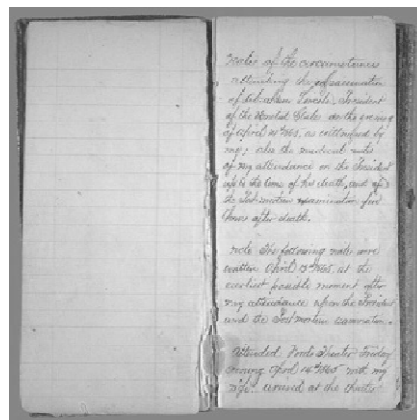 Notes of the circumstances
attending the assassination
of Abraham Lincoln, President
of the United States on the evening
of April 14th 1865, as witnessed by
me; also the medical notes
of my attendance on the President
up to the time of his death, and of
the Post-mortem examination five
hours after death.
Note The following notes were
written April 1865, at the
earliest possible moment after
my attendance upon the President
and the Post Mortem examination.
Attended Fords Theater, Friday
evening April 14th 1865 with my
wife. arrived at the theater